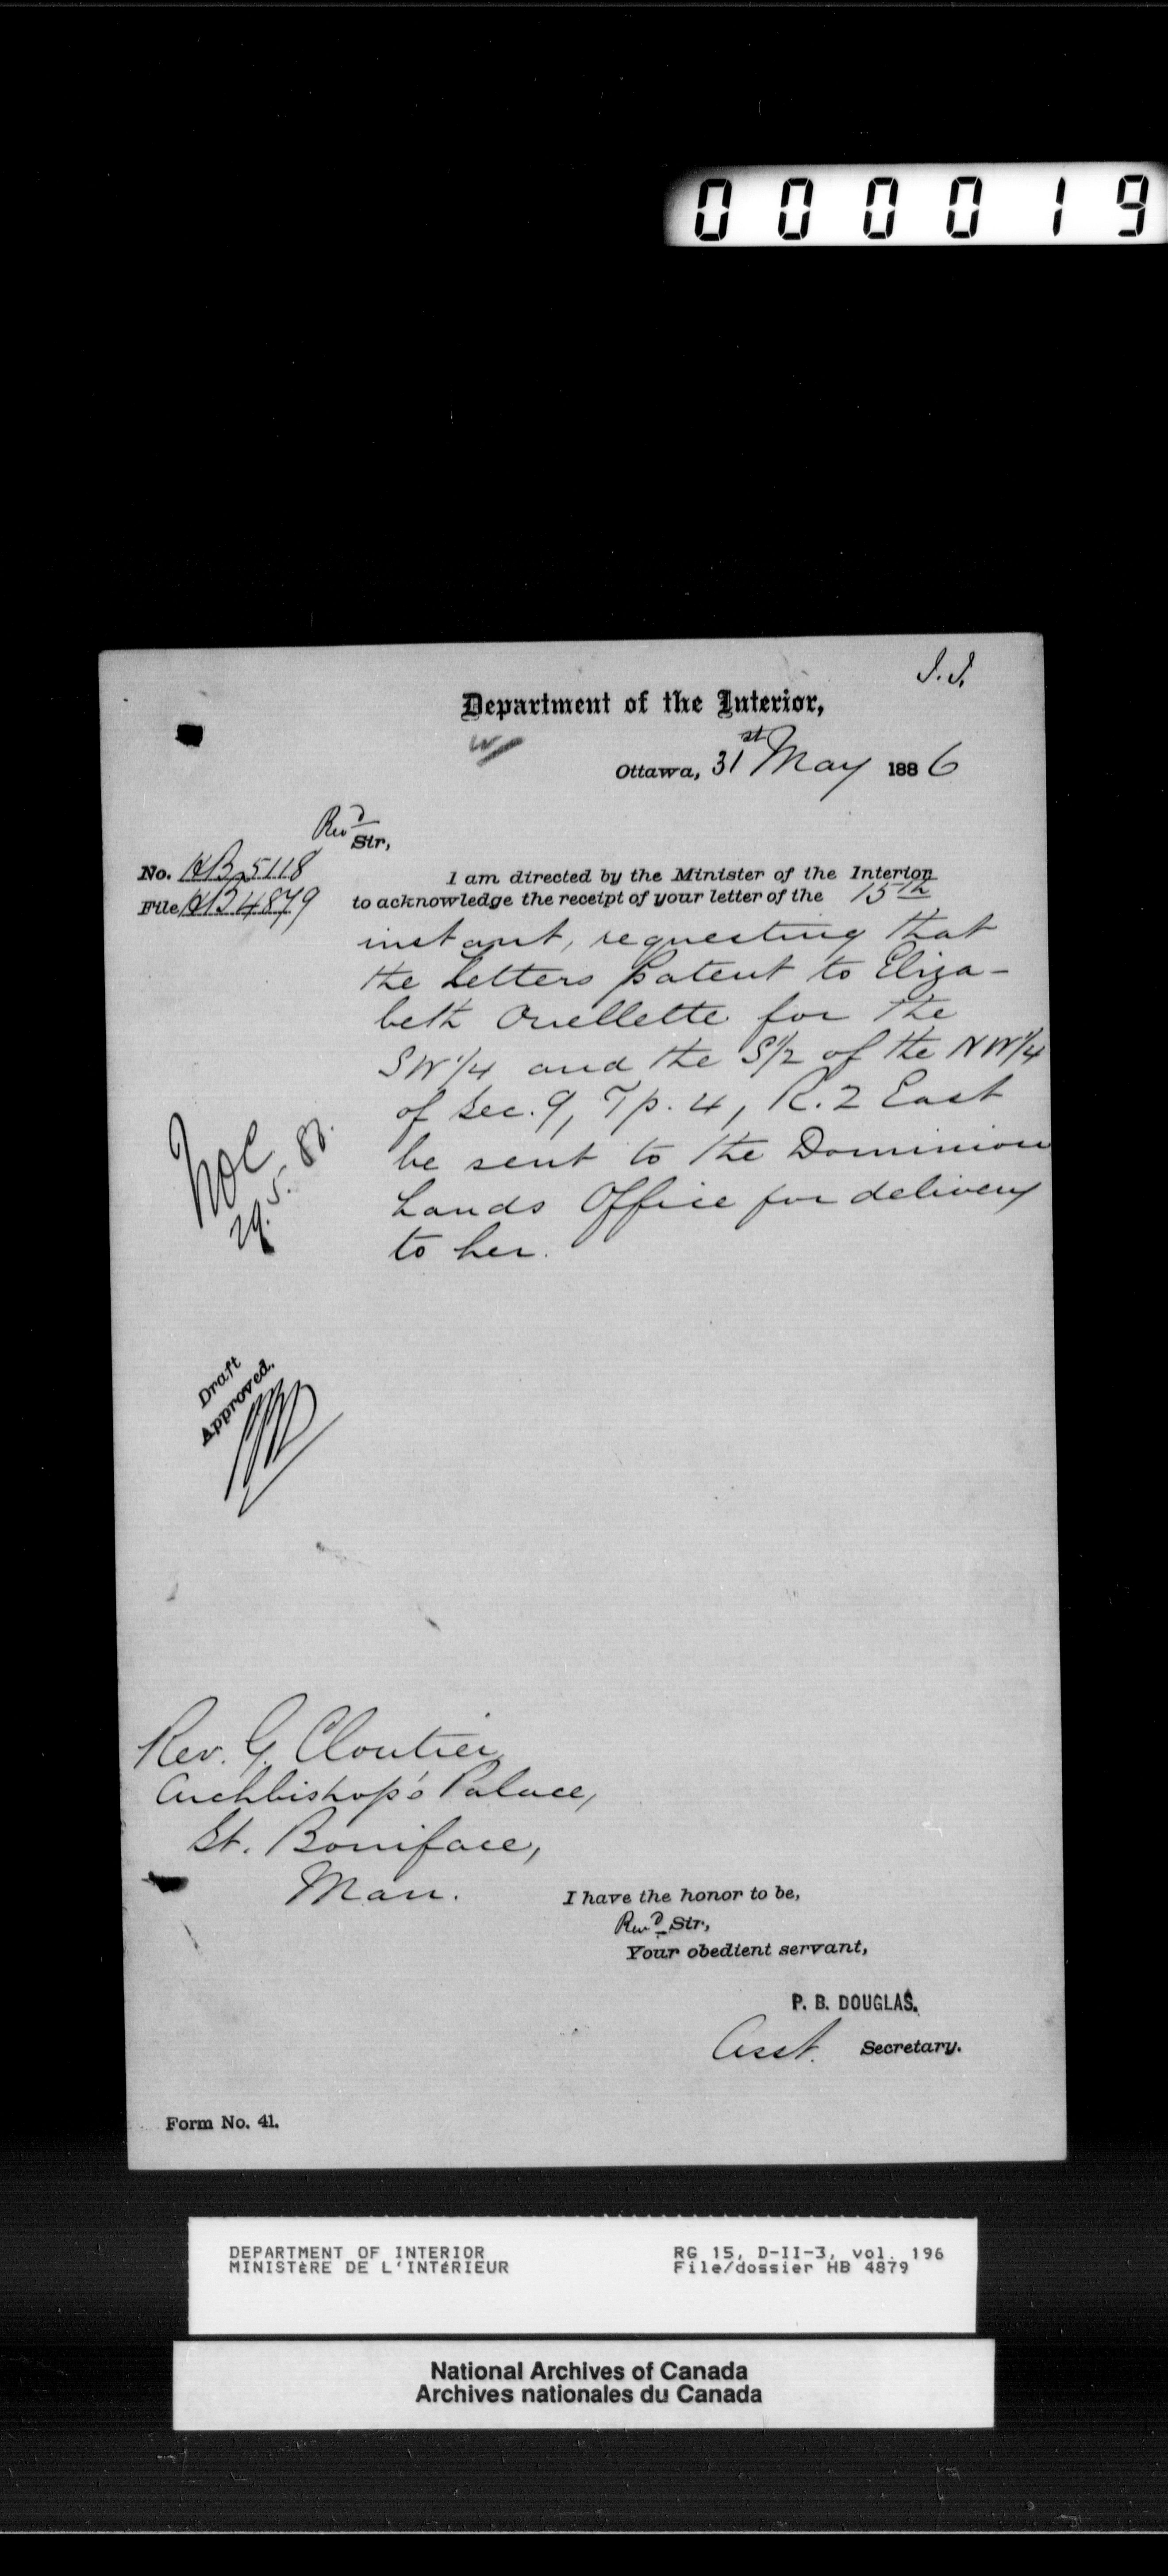 000019
J.J.
Department of the Interior,
Ottawa, 31st May 1886
Revd
Sir,
No. HB 5118
File HB 4879
I am directed by the Minister of the Interior
to acknowledge the receipt of your letter of the 15th
instant, requesting that
the Letters Patent to Eliza-
beth Ouellette for the
SW 1/4 and the S 1/2 of the NW 1/4
of Sec. 9, Tp. 4, R. 2 East
be sent to the Dominion
Lands Office for delivery
to her.
29.5.
Draft
Approved.
Rev. G. Cloutier
Archbishop's Palace,
St. Boniface,
Man.
I have the honor to be,
Revd Sir,
Your obedient servant,
P. B. DOUGLAS.
Asst. Secretary.
Form No. 41.
DEPARTMENT OF INTERIOR
MINISTèRE DE L'INTéRIEUR
RG 15, D-II-3, vol. 196
File/dossier HB 4879
National Archives of Canada
Archives nationales du Canada